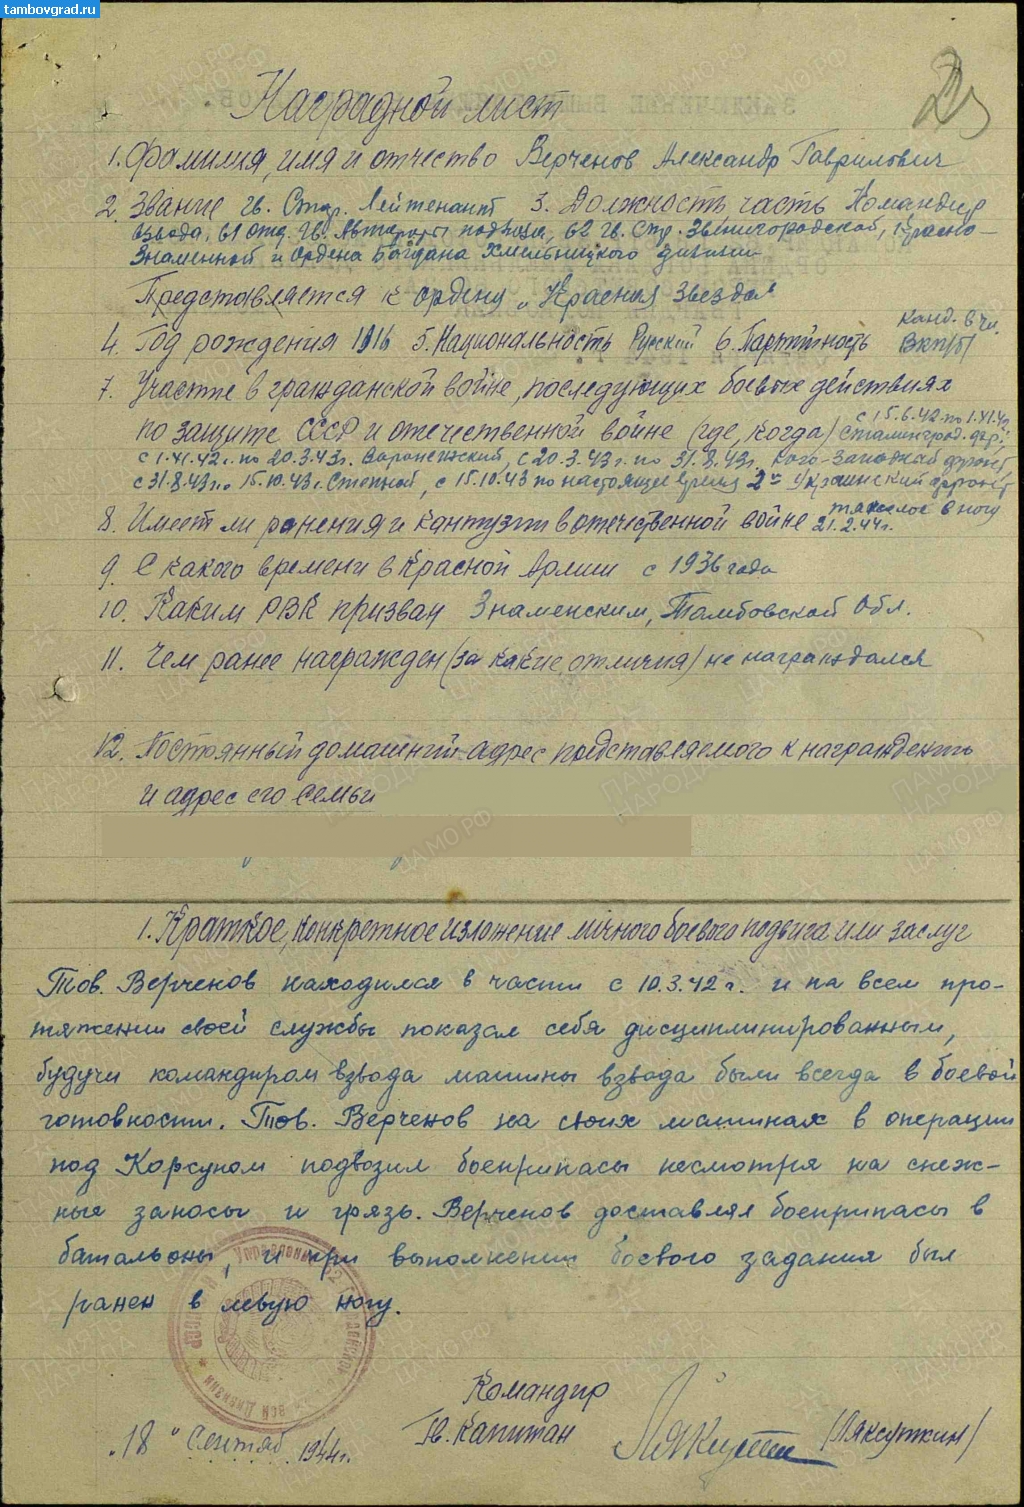 tambovgrad.ru
23
Наградной лист
1. Фамилия, имя и отчество Верченов Александр Гаврилович
2. Звание гв. Стар. Лейтенант 3. Должность, часть Командир
взвода, 61 отд. гв. Авторота подвоза, 62 гв. Стр. Звенигородской, Красно-
знаменной и Ордена Богдана Хмельницкого дивизии
Представляется к ордену „Красная Звезда"
4. Год рождения 1916 5. Национальность Русский 6. Партийность канд. в чл. ВКП/б/
7. Участие в гражданской войне, последующих боевых действиях
по защите СССР и отечественной войне (где, когда) с 15.6.42 по 1.XI.42 Сталинград. фр.,
с 1.XI.42г. по 20.3.43г. Воронежский, с 20.3.43г. по 31.8.43г. Юго-Западный фронт,
с 31.8.43г. 15.10.43г. Степной, с 15.10.43 по настоящее время 2й Украинский фронт
8. Имеет ли ранения и контузии в отечественной войне тяжелое в ногу 21.2.44г.
9. С какого времени в Красной Армии с 1936 года
10. Каким РВК призван Знаменским, Тамбовской обл.
11. Чем ранее награжден (за какие отличия) не награждался
12. Постоянный домашний адрес представляемого к награждению
и адрес его семьи
1. Краткое, конкретное изложение личного боевого подвига или заслуг
Тов. Верченов находился в части с 10.3.42г. и на всем про-
тяжении своей службы показал себя дисциплинированным,
будучи командиром взвода машины взвода были всегда в боевой
готовности. Тов. Верченов на своих машинах в операции
под Корсуном подвозил боеприпасы несмотря на снеж-
ные заносы и грязь. Верченов доставлял боеприпасы в
батальоны, и при выполнении боевого задания был
ранен в левую ногу.
Командир
Гв. Капитан (Ляксуткин)
„18" Сентяб 1944г.